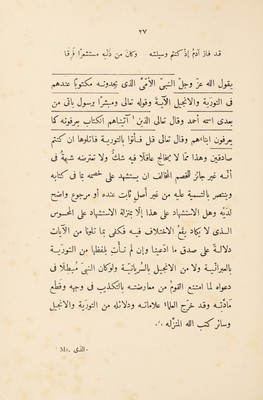 ٢٧
قد فاز آدم إذ كنتم وسيلته وكان من ذنبه مستشعرا فرقا
يقول الله عزّ وجلّ النبيّ الأمّيّ الذى يجدونه مكتوبا عندهم
فى التوراة والانجيل الآية وقوله تعالى ومبشرا برسول ياتى من
بعدى اسمه أحمد وقال تعالى الذين¹ آتيناهم الكتاب يعرفونه كما
يعرفون ابناءهم وقال تعالى قل فأتوا بالتورية فاتلوها ان كنتم
صادقين وهذا ممّا لا يخالج عاقلا فيه شكّ ولا تعترضه شبهة فى
أنّه غير جائز للخصم المخالف ان يستشهد على خصمه بما فى كتابه
وينتصر بالتسمية عليه من غير أصل ثابت عنده أو مرجوع واضح
لديه وهل الاستشهاد على هذا إلّا بمنزلة الاستشهاد على المحسوس
الذى لا يكاد يقع الاختلاف فيه فكفى بما تلونا من الآيات
دلالة على صدق ما ادّعينا وإن لم نأت بلفظها من التوريّة
بالعبرانيّة ولا من الانجيل بالسُّريانيّة ولو كان النبىّ مُبطِلا فى
دعواه لما امتنع القوم من معارضته بالتكذيب فى وجهه وقطع
مادّته وقد خرّج العلماء علاماته ودلائله من التورية والانجيل
وسائر كتب الله المنزلة
¹ Ms. الذى.